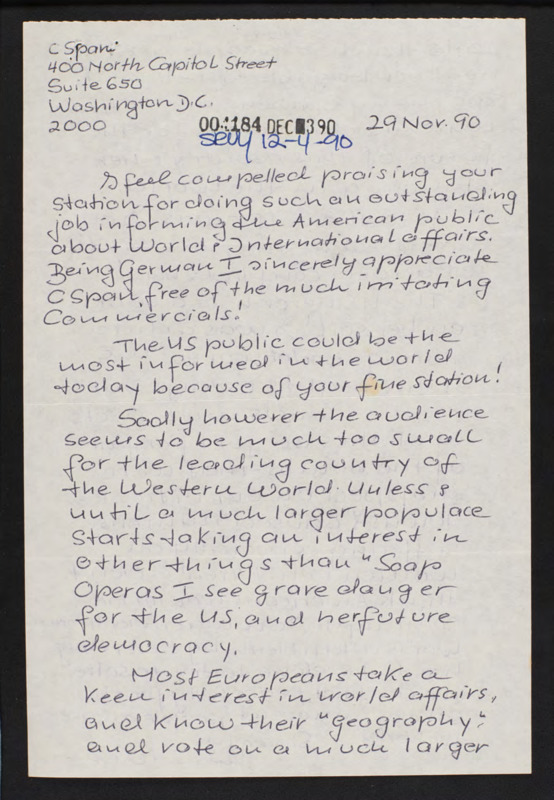 C Span
400 North Capitol Street
Suite 650
Washington D.C.
2000
004184 DEC 390
29 Nov. 90
12-4-90
I feel compelled praising your
station for doing such an outstanding
job informing the American public
about World & International affairs.
Being German I sincerely appreciate
C Span, free of the much irritating
Commercials!
The US public could be the
most informed in the world
today because of your fine station!
Sadly however the audience
seems to be much too small
for the leading country of
the Western World. Unless &
until a much larger populace
starts taking an interest in
other things than "Soap
Operas I see grave danger
for the US, and her future
democracy.
Most Europeans take a
keen interest in world affairs,
and know their "geography",
and vote on a much larger